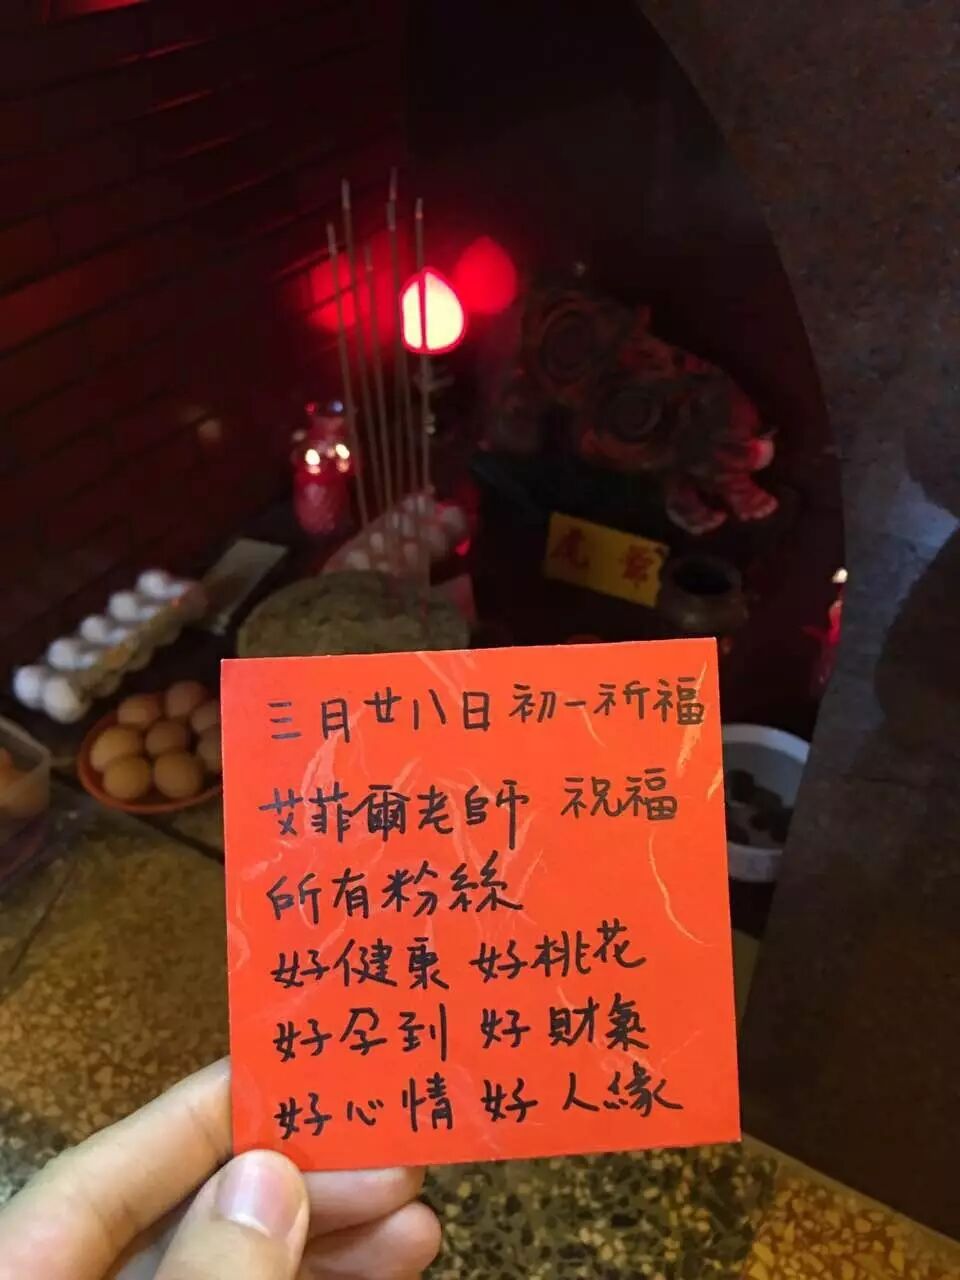 虎爺
三月廿八日 初一祈福
艾菲爾老師 祝福
所有粉絲
好健康 好桃花
好孕到 好財氣
好心情 好人緣